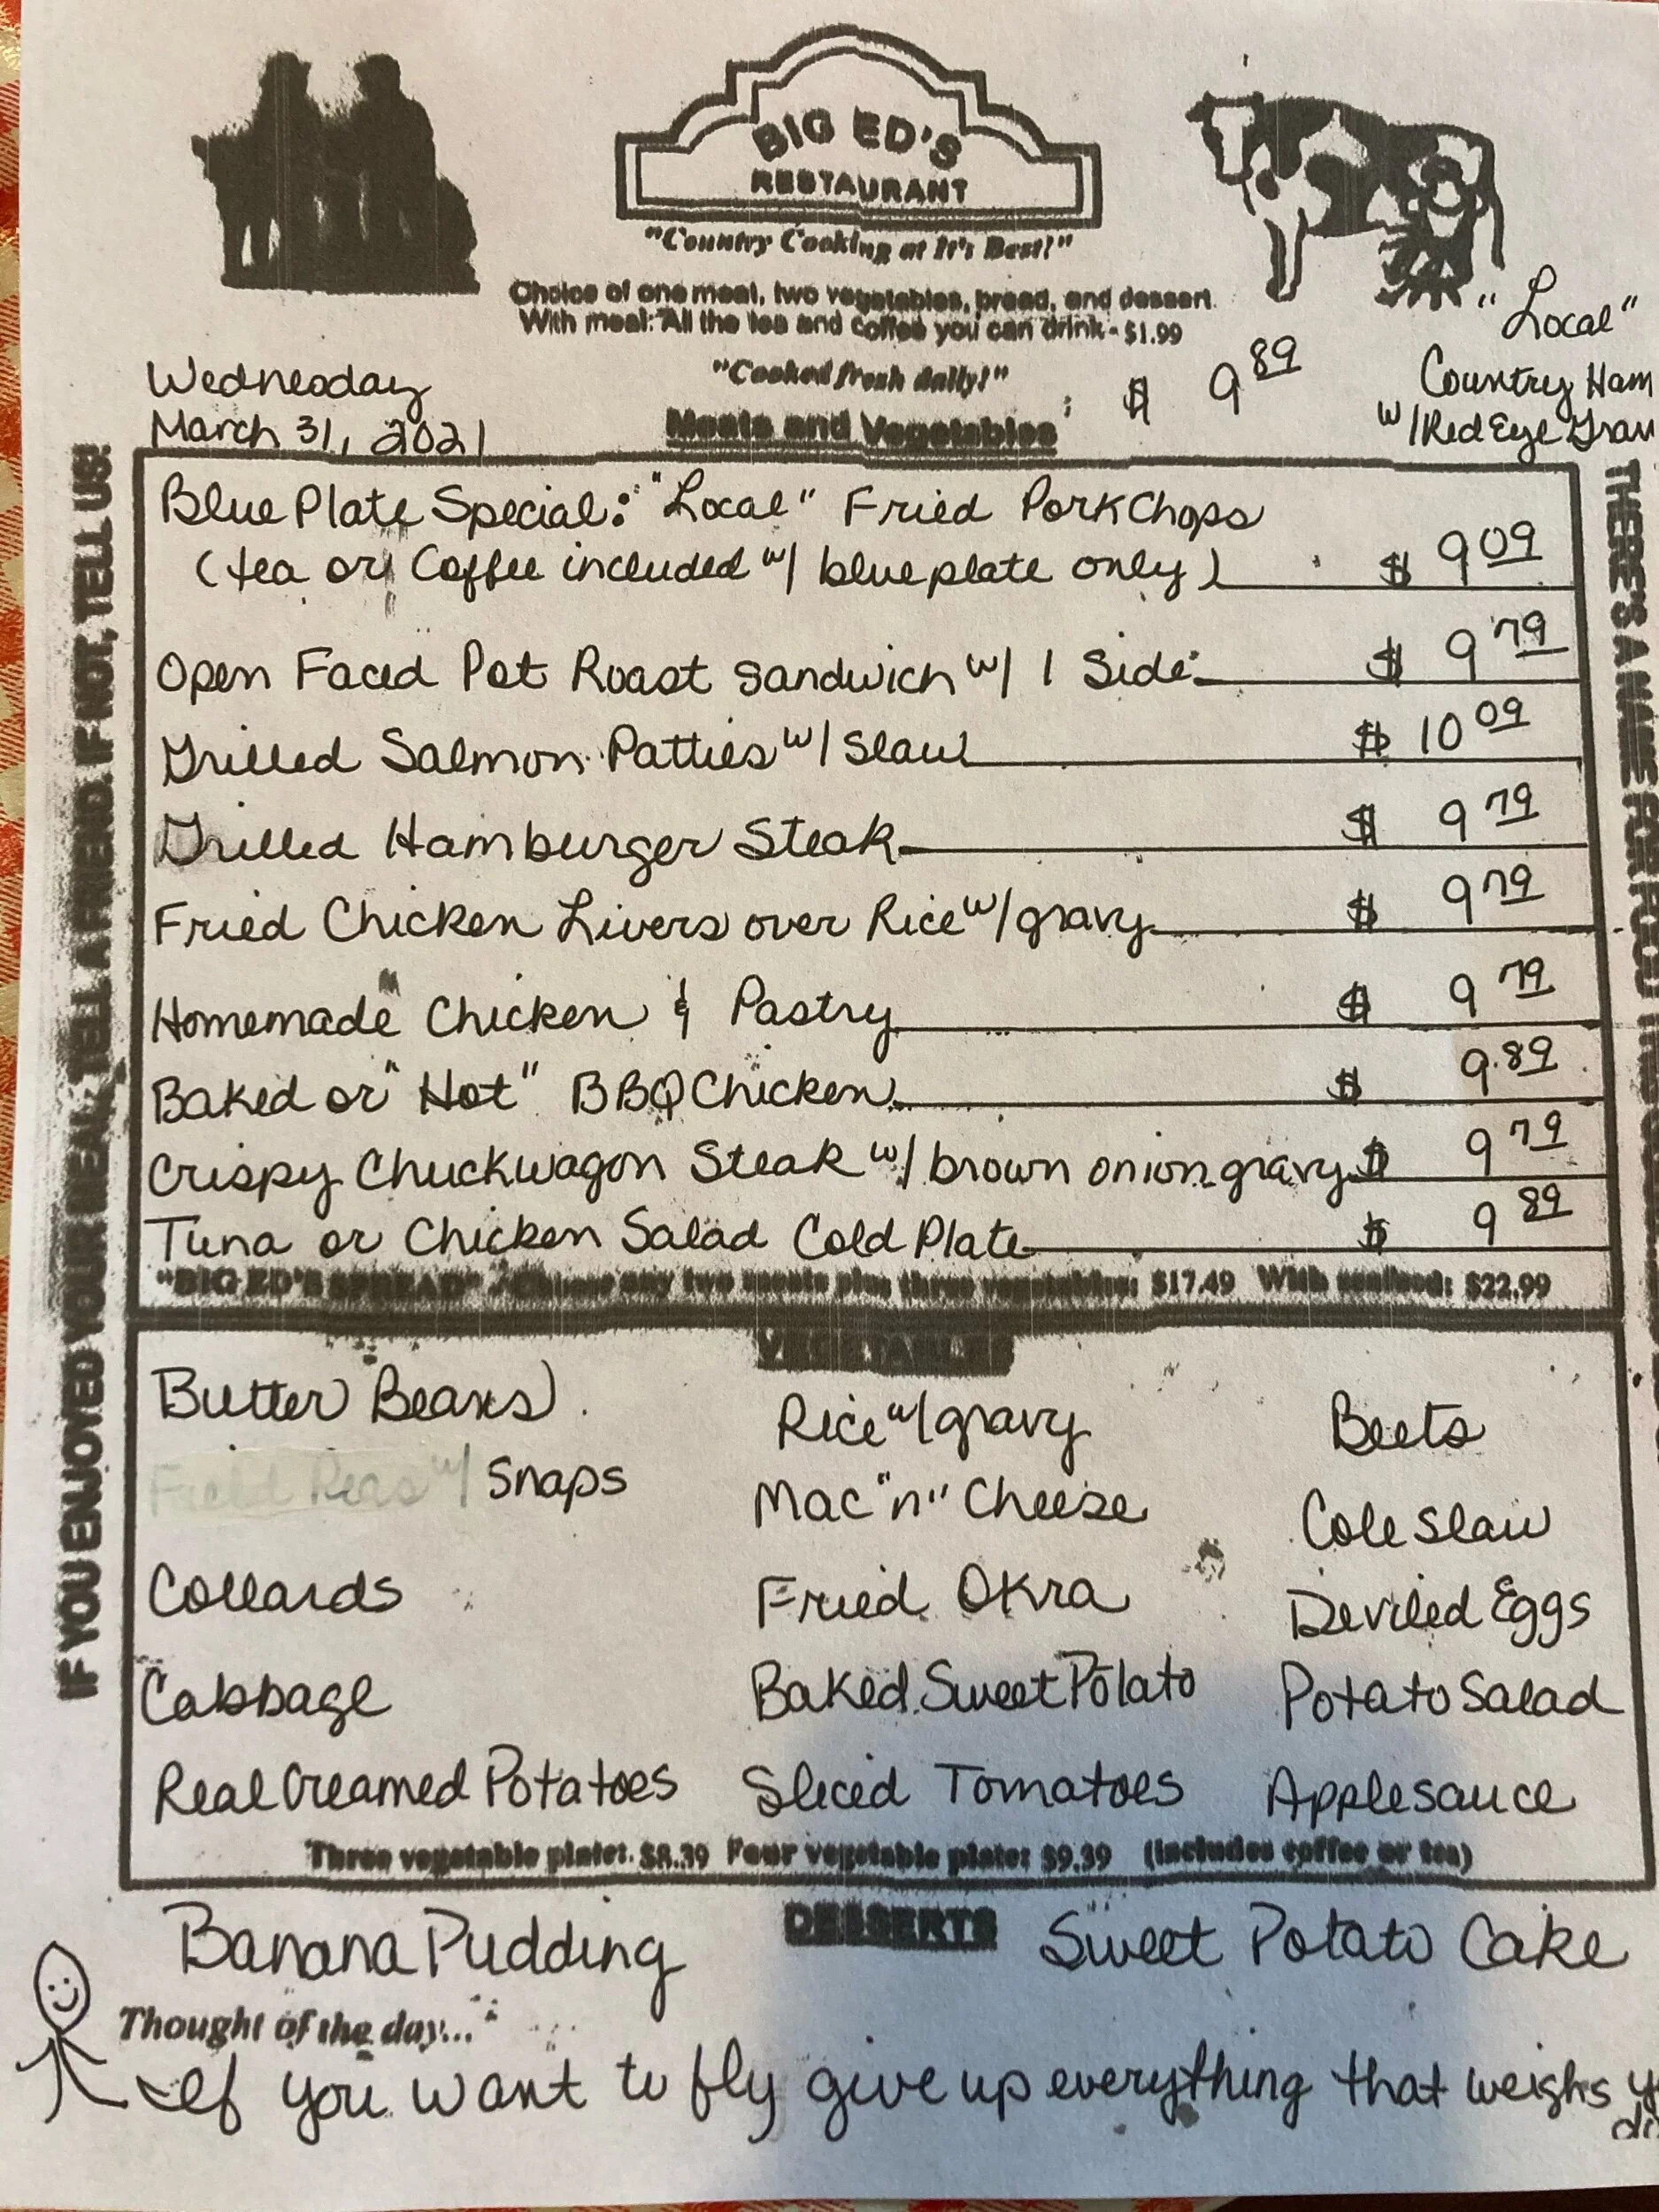 BIG ED'S
RESTAURANT
"Country Cooking at It's Best!"
Choice of one meat, two vegetables, bread, and dessert.
With meal: All the tea and coffee you can drink - $1.99
"Cooked fresh daily!"
Wednesday
March 31, 2021
Meats and Vegetables
$ 9 89
"Local"
Country Ham
w/Red Eye Grav
IF YOU ENJOYED YOUR MEAL, TELL A FRIEND. IF NOT, TELL US!
THERE'S A NAME FOR FOOD
Blue Plate Special: "Local" Fried Pork Chops
(tea or Coffee included w/ blue plate only) $ 9 09
Open Faced Pot Roast Sandwich w/ 1 Side $ 9 79
Grilled Salmon Patties w/ Slaw $ 10 09
Grilled Hamburger Steak $ 9 79
Fried Chicken Livers over Rice w/ gravy $ 9 79
Homemade Chicken & Pastry $ 9 79
Baked or "Hot" BBQ Chicken $ 9.89
Crispy Chuckwagon Steak w/ brown onion gravy $ 9 79
Tuna or Chicken Salad Cold Plate $ 9 89
"BIG ED'S SPREAD" - Choose any two meats plus three vegetables: $17.49 With seafood: $22.99
VEGETABLES
Butter Beans Rice w/gravy Beets
Field Peas w/ Snaps Mac "n" Cheese Cole Slaw
Collards Fried Okra Deviled Eggs
Cabbage Baked Sweet Potato Potato Salad
Real Creamed Potatoes Sliced Tomatoes Applesauce
Three vegetable plate: $8.39 Four vegetable plate: $9.39 (Includes coffee or tea)
Banana Pudding DESSERTS Sweet Potato Cake
Thought of the day...
If you want to fly give up everything that weighs